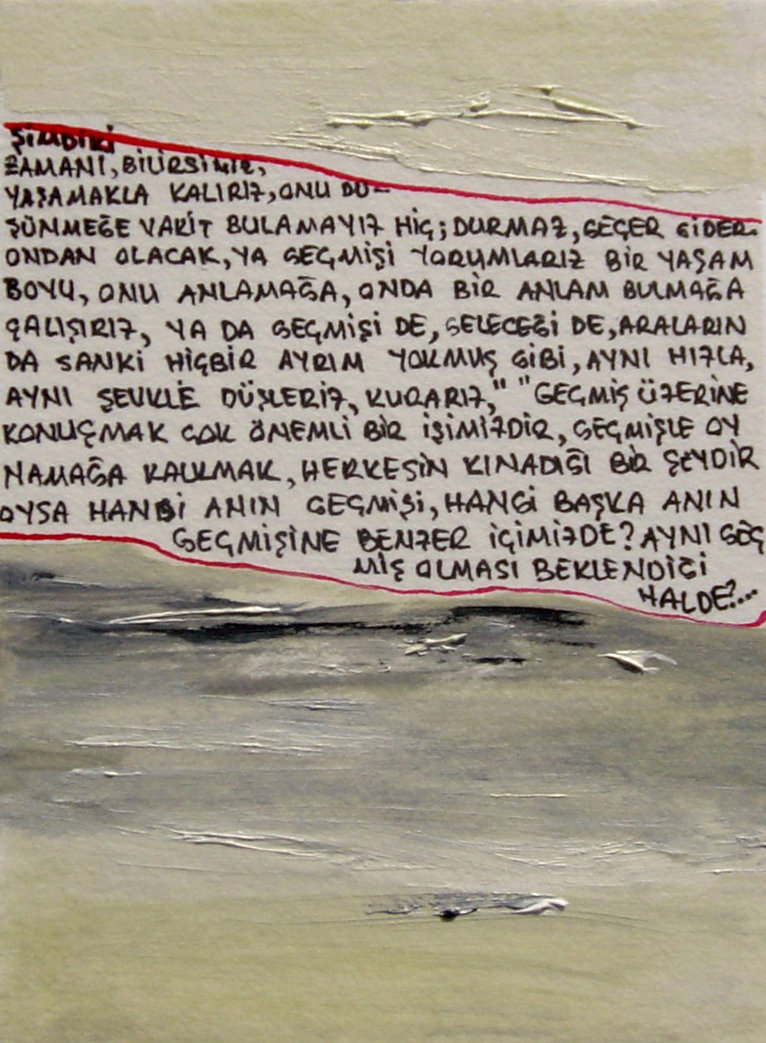 ŞİMDİKİ
ZAMANI, BİLİRSİNİZ,
YAŞAMAKLA KALIRIZ, ONU DÜ-
ŞÜNMEĞE VAKİT BULAMAYIZ HİÇ; DURMAZ, GEÇER GİDER.
ONDAN OLACAK, YA GEÇMİŞİ YORUMLARIZ BİR YAŞAM
BOYU, ONU ANLAMAĞA, ONDA BİR ANLAM BULMAĞA
ÇALIŞIRIZ, YA DA GEÇMİŞİ DE, GELECEĞİ DE, ARALARIN
DA SANKİ HİÇBİR AYRIM YOKMUŞ GİBİ, AYNI HIZLA,
AYNI ŞEVKLE DÜŞLERİZ, KURARIZ," "GEÇMİŞ ÜZERİNE
KONUŞMAK ÇOK ÖNEMLİ BİR İŞİMİZDİR, GEÇMİŞLE OY
NAMAĞA KALKMAK, HERKESİN KINADIĞI BİR ŞEYDİR
OYSA HANGİ ANIN GEÇMİŞİ, HANGİ BAŞKA ANIN
GEÇMİŞİNE BENZER İÇİMİZDE? AYNI GEÇ
MİŞ OLMASI BEKLENDİĞİ
HALDE?...